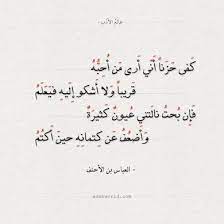 عالم الأدب
كَفى حَزَناً أَنّي أَرى مَن أُحِبُّهُ
قَريباً وَلا أَشكو إِلَيهِ فَيَعلَمُ
فَإِن بُحتُ نالَتني عُيونٌ كَثيرَةٌ
وَأَضعُفُ عَن كِتمانِهِ حينَ أَكتُمُ
- العباس بن الأحنف -
adabworld.com